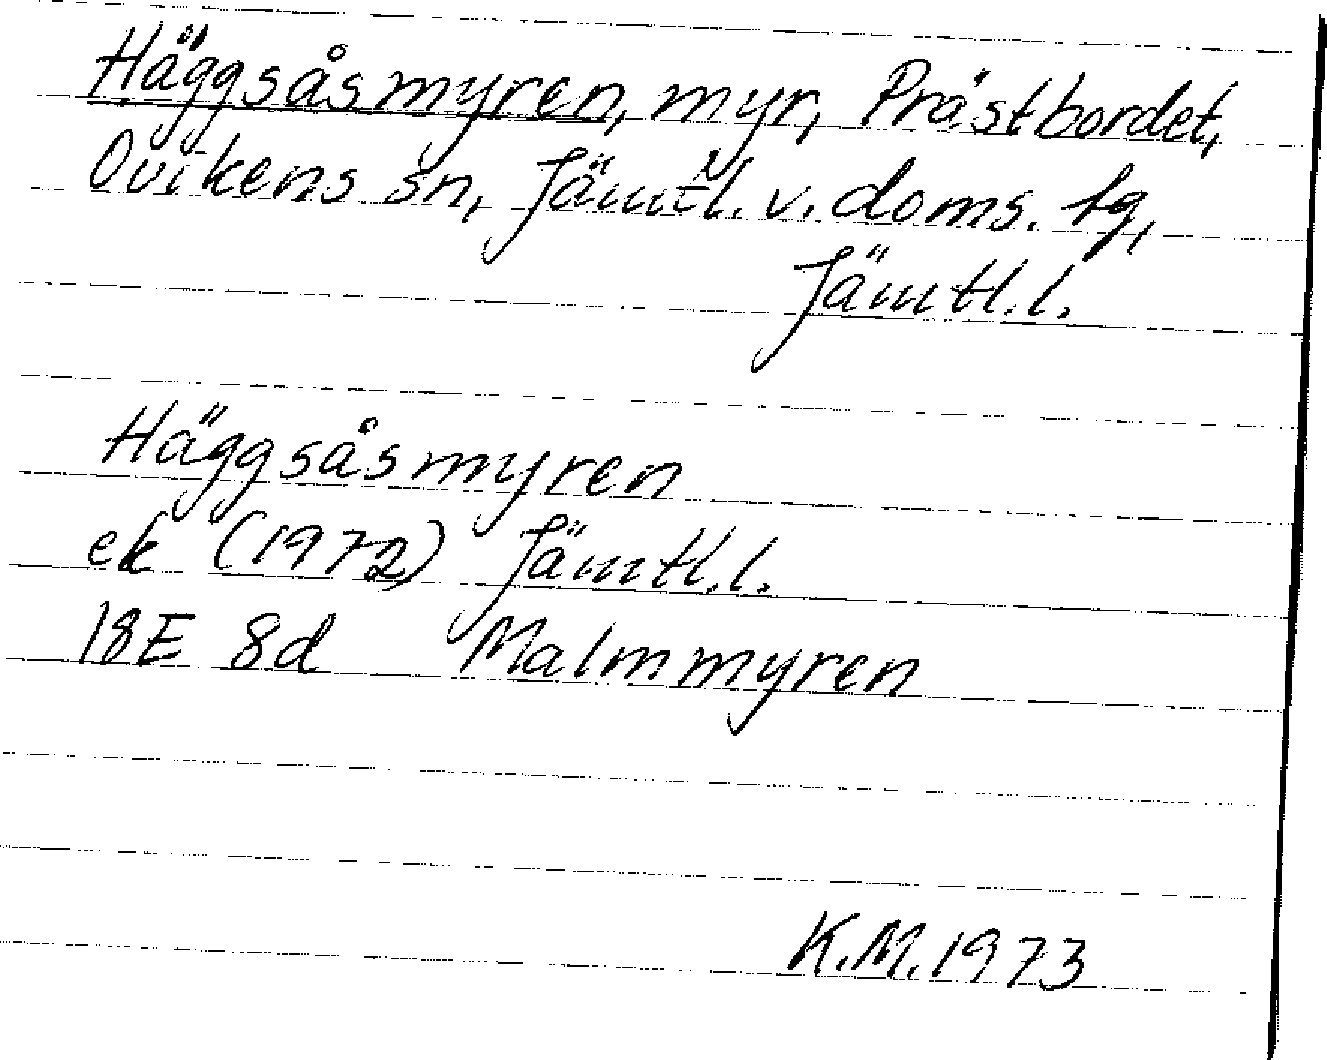 Häggsåsmyren, myr, Prästbordet,
Ovikens sn, Jämtl. v. doms. tg,
Jämtl.l.
Häggsåsmyren
ek (1972) Jämtl.l.
18E 8d Malmmyren
K.M.1973